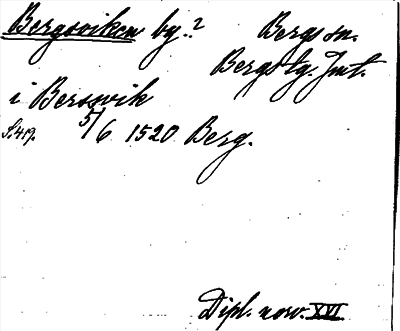 Bergsviken by.? Bergs sn.
Bergs tg. Jmt.
i Berssvik
S. 419. 5/6 1520 Berg.
Dipl. norv. XVI.